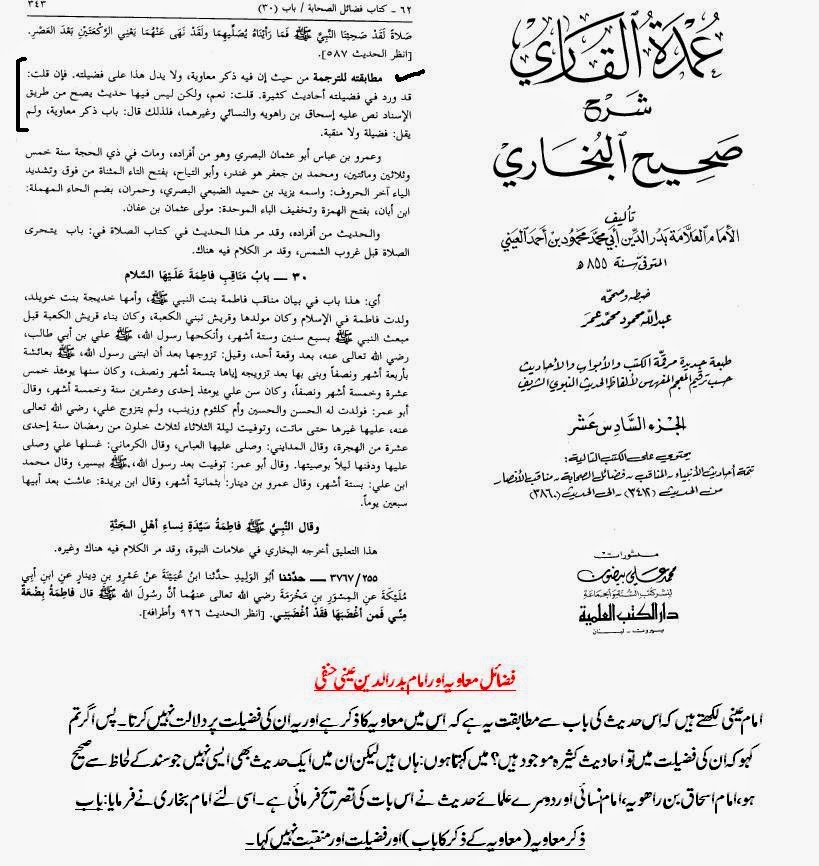 ٦٢ - كتاب فضائل الصحابة / باب (٣٠)
٣٤٣
صَلاةً لَقَدْ صَحِبْنَا النَّبِيَّ ﷺ فَمَا رَأَيْنَاهُ يُصَلِّيهِمَا ولَقَدْ نَهَى عَنْهُمَا يَعْنِي الرَّكْعَتَيْنِ بَعْدَ العَصْرِ.
[انظر الحديث ٥٨٧].
مطابقته للترجمة من حيث إن فيه ذكر معاوية، ولا يدل هذا على فضيلته. فإن قلت:
قد ورد في فضيلته أحاديث كثيرة. قلت: نعم، ولكن ليس فيها حديث يصح من طريق
الإسناد نص عليه إسحاق بن راهويه والنسائي وغيرهما، فلذلك قال: باب ذكر معاوية، ولم
يقل: فضيلة ولا منقبة.
وعمرو بن عباس أبو عثمان البصري وهو من أفراده، ومات في ذي الحجة سنة خمس
وثلاثين ومائتين، ومحمد بن جعفر هو غندر، وأبو التياح، بفتح التاء المثناة من فوق وتشديد
الياء آخر الحروف: واسمه يزيد بن حميد الضبعي البصري، وحمران، بضم الحاء المهملة:
ابن أبان، بفتح الهمزة وتخفيف الباء الموحدة: مولى عثمان بن عفان.
والحديث من أفراده، وقد مر هذا الحديث في كتاب الصلاة في: باب يتحرى
الصلاة قبل غروب الشمس، وقد مر الكلام فيه هناك.
٣٠ ـــ بابُ مَنَاقِبِ فاطِمَةَ عَلَيْهَا السَّلام
أي: هذا باب في بيان مناقب فاطمة بنت النبي ﷺ، وأمها خديجة بنت خويلد،
ولدت فاطمة في الإسلام وكان مولدها وقريش تبني الكعبة، وكان بناء قريش الكعبة قبل
مبعث النبي ﷺ بسبع سنين وستة أشهر، وأنكحها رسول الله، ﷺ علي بن أبي طالب،
رضي الله تعالى عنه، بعد وقعة أحد، وقيل: تزوجها بعد أن ابتنى رسول الله، ﷺ بعائشة
بأربعة أشهر ونصف وبنى بها بعد تزويجه إياها بتسعة أشهر ونصف، وكان سنها يومئذ خمس
عشرة وخمسة أشهر ونصفاً، وكان سن علي يومئذ إحدى وعشرين سنة وخمسة أشهر، وقال
أبو عمر: فولدت له الحسن والحسين وأم كلثوم وزينب، ولم يتزوج علي، رضي الله تعالى
عنه، عليها غيرها حتى ماتت، وتوفيت ليلة الثلاثاء لثلاث خلون من رمضان سنة إحدى
عشرة من الهجرة، وقال المدايني: وصلى عليها العباس، وقال الكرماني: غسلها علي وصلى
عليها ودفنها ليلاً بوصيتها. وقال أبو عمر: توفيت بعد رسول الله، ﷺ، بيسير، وقال محمد
ابن علي: بستة أشهر، وقال عمرو بن دينار: بثمانية أشهر، وقال ابن بريدة: عاشت بعد أبيها
سبعين يوماً.
وقال النَّبِيُّ ﷺ فاطِمَةُ سَيِّدَةِ نِساءِ أهْلِ الجَنَّةِ
هذا التعليق أخرجه البخاري في علامات النبوة، وقد مر الكلام فيه هناك وغيره.
٣٧٦٧/٢٥٥ ـــ حدَّثنا أبُو الوَلِيدِ حدَّثنا ابنُ عُيَيْنَةَ عنْ عَمْرِو بنِ دِينارٍ عنِ ابنِ أبِي
مُلَيْكَةَ عنِ المِسْوَرِ بنِ مَخْرَمَةَ رضي الله تعالى عنهُما أنَّ رسُولَ الله ﷺ قال فاطِمَةُ بِضْعَةٌ
مِنِّي فَمن أغْضَبَهَا فقَدْ أغْضَبَنِي. [انظر الحديث ٩٢٦ وأطرافه].
عُمدَةُ القَارِي
شَرْح
صَحِيح البُخَارِي
تأليف
الإمام العلامة بدر الدين أبي محمد محمود بن أحمد العيني
المتوفى سنة ٨٥٥ هـ
ضبطه وصححه
عبد الله محمود محمد عمر
طبعة جديدة مرقمة الكتب والأبواب والأحاديث
حسب ترقيم المعجم المفهرس لألفاظ الحديث النبوي الشريف
الجزء السادس عشر
يحتوي على الكتب التالية:
تتمة أحاديث الأنبياء - المناقب - فضائل الصحابة - مناقب الأنصار
من الحديث (٣٤١٢) - إلى الحديث (٣٨٦٠)
منشورات
محمد علي بيضون
لنشر كتب السنة والجماعة
دار الكتب العلمية
بيروت - لبنان
فضائل معاویہ اور امام بدرالدین عینی حنفی
امام عینی لکھتے ہیں کہ اس حدیث کی باب سے مطابقت یہ ہے کہ اس میں معاویہ کا ذکر ہے اور یہ ان کی فضیلت پر دلالت نہیں کرتا۔ پس اگر تم
کہو کہ ان کی فضیلت میں تو احادیث کثیرہ موجود ہیں؟ میں کہتا ہوں: ہاں ہیں لیکن ان میں ایک حدیث بھی ایسی نہیں جو سند کے لحاظ سے صحیح
ہو، امام اسحاق بن راھویہ، امام نسائی اور دوسرے علمائے حدیث نے اس بات کی تصریح فرمائی ہے۔ اسی لئے امام بخاری نے فرمایا: باب
ذکر معاویہ (معاویہ کے ذکر کا باب) اور فضیلت اور منقبت نہیں کہا۔